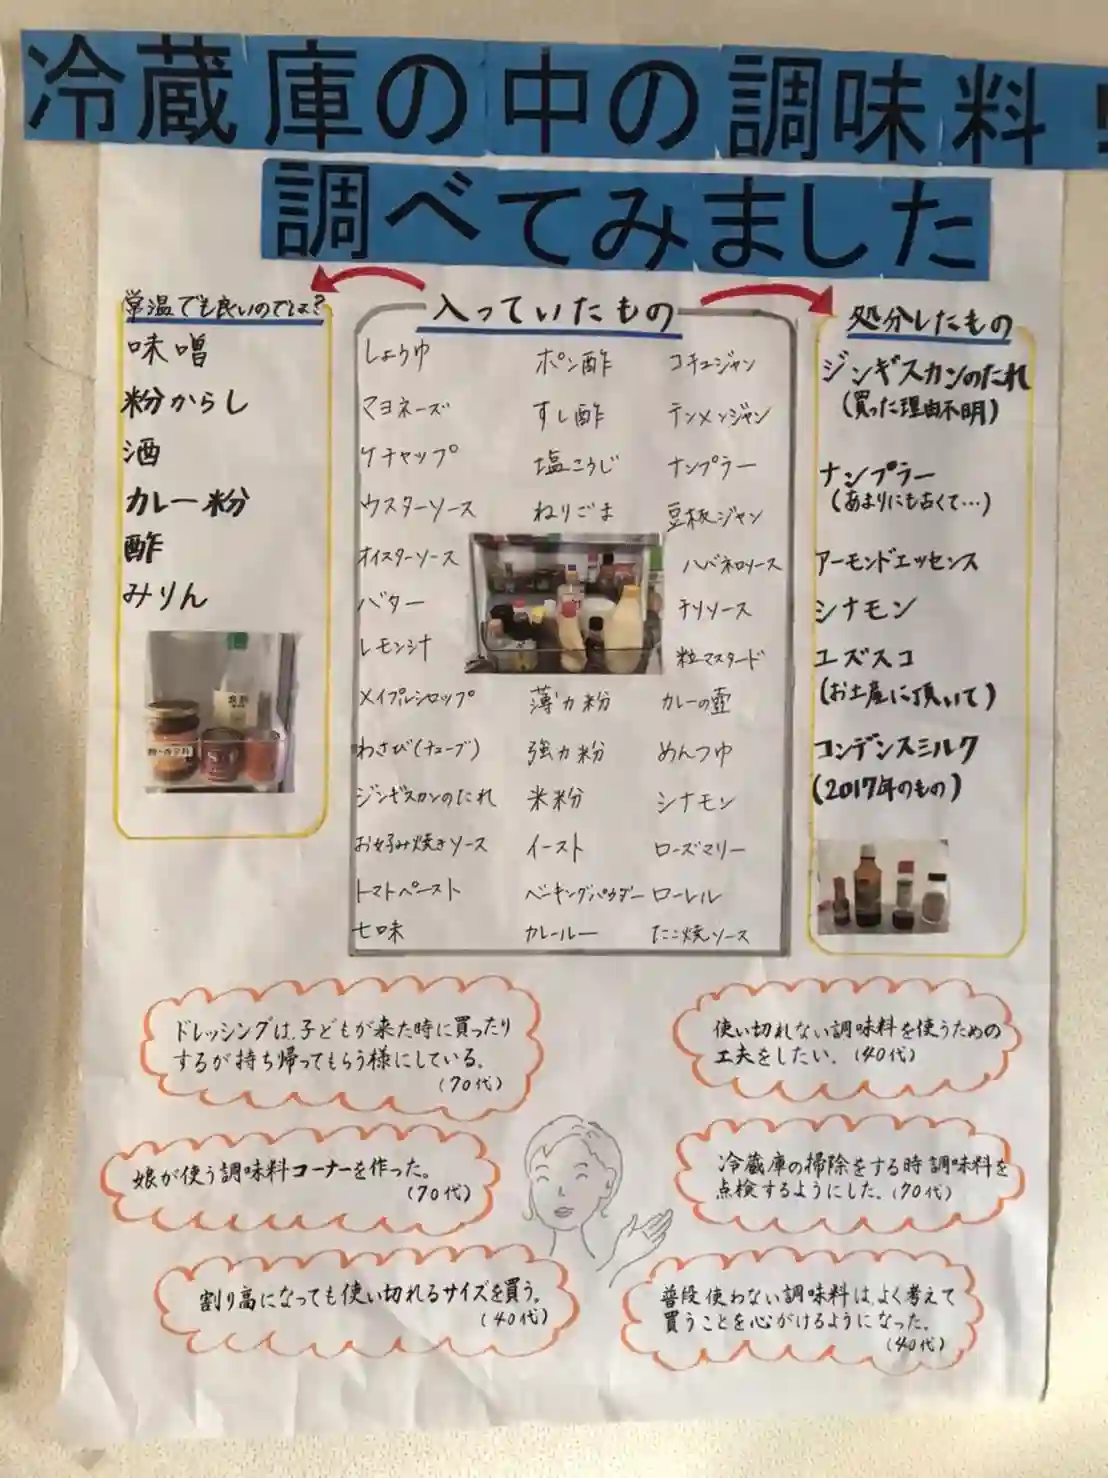 冷蔵庫の中の調味料!
調べてみました
常温でも良いのでは?
味噌
粉からし
酒
カレー粉
酢
みりん
入っていたもの
しょうゆ
マヨネーズ
ケチャップ
ウスターソース
オイスターソース
バター
レモン汁
メイプルシロップ
わさび(チューブ)
ジンギスカンのたれ
お好み焼きソース
トマトペースト
七味
ポン酢
すし酢
塩こうじ
ねりごま
薄力粉
強力粉
米粉
イースト
ベーキングパウダー
カレールー
コチュジャン
テンメンジャン
ナンプラー
豆板ジャン
ハバネロソース
チリソース
粒マスタード
カレーの壺
めんつゆ
シナモン
ローズマリー
ローレル
たこ焼ソース
処分したもの
ジンギスカンのたれ
(買った理由不明)
ナンプラー
(あまりにも古くて…)
アーモンドエッセンス
シナモン
ユズスコ
(お土産に頂いて)
コンデンスミルク
(2017年のもの)
ドレッシングは、子どもが来た時に買ったり
するが持ち帰ってもらう様にしている。
(70代)
使い切れない調味料を使うための
工夫をしたい。(40代)
娘が使う調味料コーナーを作った。
(70代)
冷蔵庫の掃除をする時調味料を
点検するようにした。(70代)
割り高になっても使い切れるサイズを買う。
(40代)
普段使わない調味料は、よく考えて
買うことを心がけるようになった。
(40代)